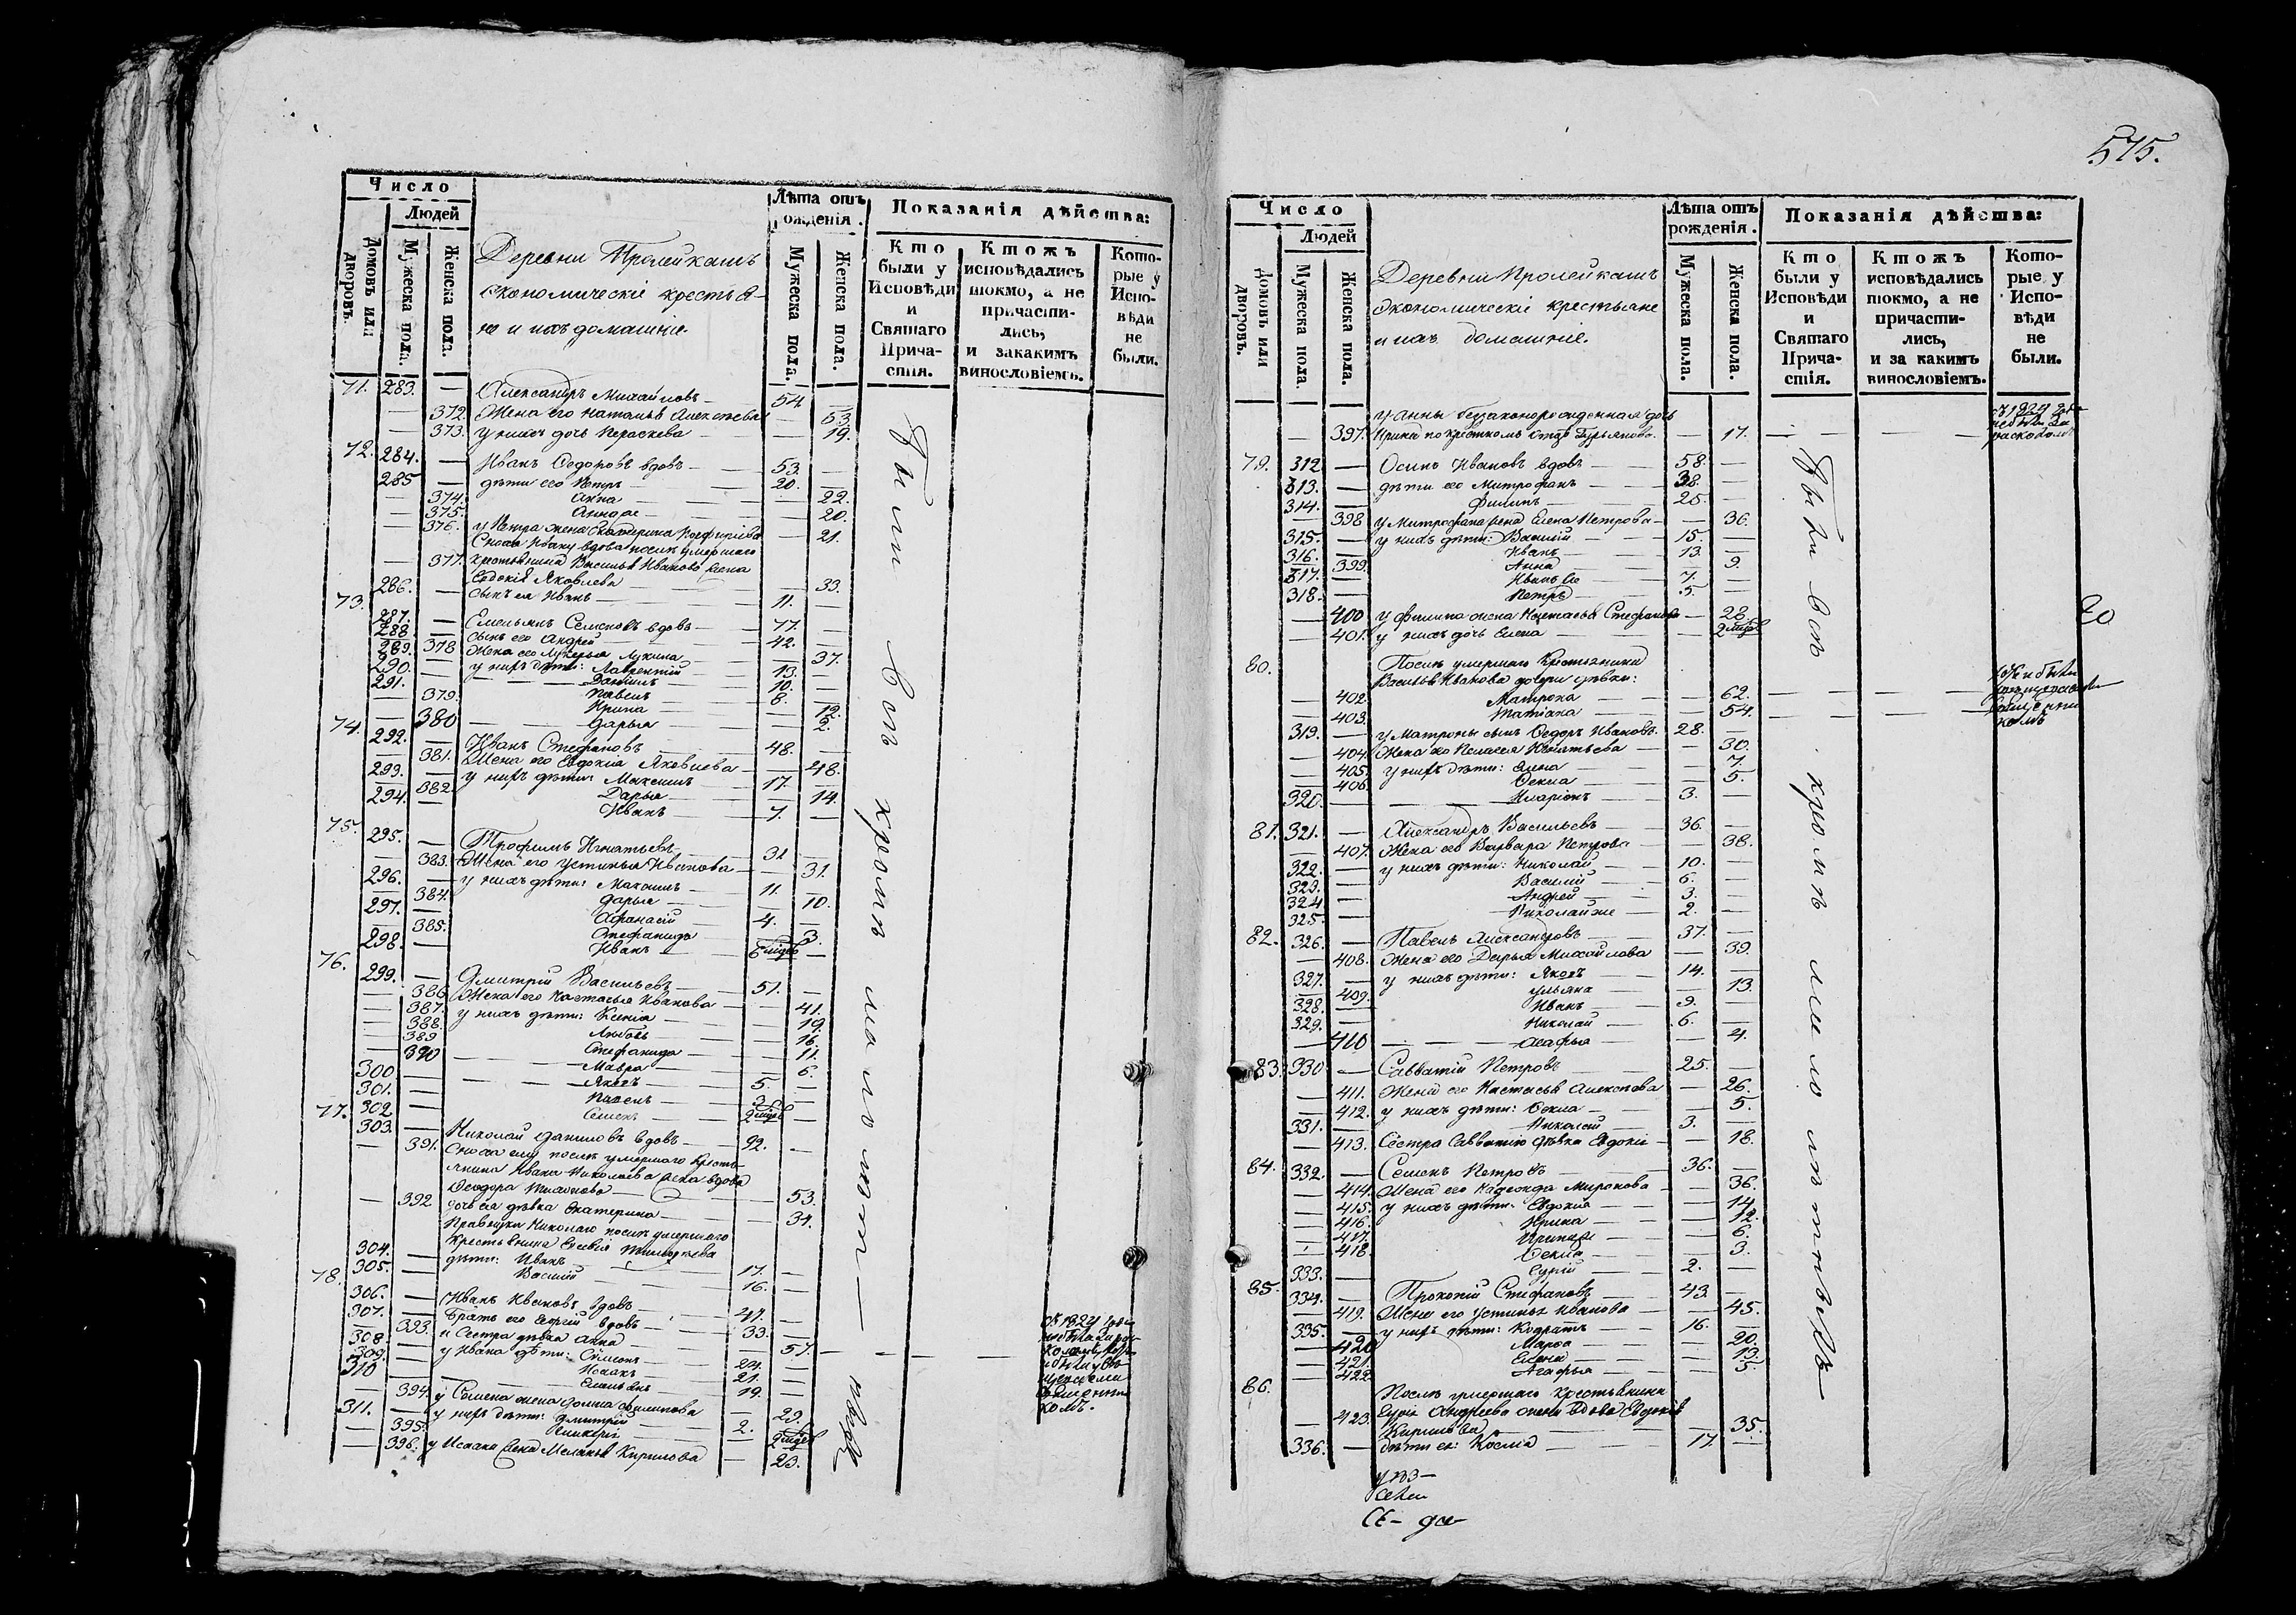 Число
Людей
Домовъ или дворовъ.
Мужеска пола.
Женска пола.
Деревни Пролейкашъ
экономическіе крестья-
не и ихъ домашніе.
Лѣта отъ рожденія.
Мужеска пола.
Женска пола.
Показанія дѣйства:
Кто были у Исповѣди и Святаго Причастія.
Ктожъ исповѣдались токмо, а не причастились, и закакимъ винословіемъ.
Которые у Исповѣди не были.
71. 283. — Александръ Михайловъ — 54 —
— 372. Жена его Наталья Алексѣева — 53.
— 373. у нихъ дочь Параскева — 19.
72. 284. — Иванъ Ѳедоровъ вдовъ — 53. —
285 — дѣти его Петръ — 20. —
— 374. Анна — 22.
— 375. Анна же — 20.
— 376. у Петра жена Екатерина — 21.
Сноха Ивану вдова послѣ умершаго
— 377. крестьянина Василья Иванова жена
Евдокія Яковлева — 33.
286. — сынъ ея Иванъ — 11. —
73. 287. — Емельянъ Семеновъ вдовъ — 77. —
288. — сынъ его Андрей — 42. —
378 Жена его Лукерья Лукина — 37.
289. — у нихъ дѣти: Лаврентій — 13. —
290. — Даніилъ — 10. —
291. — Павелъ — 8. —
— 379. Ирина — 12.
— 380 Дарья — 2.
74. 292. — Иванъ Стефановъ — 48. —
— 381. Жена его Евдокія Яковлева — 48.
293. — у нихъ дѣти: Максимъ — 17. —
— 382. Дарья — 14.
294. — Иванъ — 7. —
75. 295. — Трофимъ Игнатьевъ — 31 —
— 383. Жена его Устинья Иванова — 31.
296. — у нихъ дѣти: Максимъ — 11. —
— 384. Дарья — 10.
297. — Афанасій — 4. —
— 385. Стефанида — 3.
298. — Иванъ — 6 мцѣв —
76. 299. — Дмитрій Васильевъ — 51. —
— 386 Жена его Настасья Иванова — 41.
— 387. у нихъ дѣти: Ксенія — 19.
— 388. Любовь — 16.
— 389 Стефанида — 11.
— 390 Мавра — 6.
300. — Яковъ — 5. —
301. — Павелъ — 3. —
302. — Семенъ — 9 мцѣв —
77. 303. — Николай Даниловъ вдовъ — 92. —
— 391. Сноха ему послѣ умершаго кресть-
янина Ивана Николаева жена вдова
Ѳеодора — 53.
— 392 дочь ея дѣвка Екатерина — 31.
Правнуки Николаю послѣ умершаго
крестьянина Тимофеева
304. — дѣти: Иванъ — 17. —
305. — Василій — 16. —
78. 306. — Иванъ Ивановъ вдовъ — 47. —
307. — Братъ его Сергій вдовъ — 33. —
— 393. и Сестра дѣвка Анна — 57.
308. — у Ивана дѣти: Симеонъ — 24. —
309. — Исаакъ — 21. —
310 — Емельянъ — 19. —
— 394. у Семена жена Филипова — 23.
311. — у нихъ дѣти: Дмитрій — 2. —
— 395. 9 мцѣв
— 396. у Исаака жена Меланья Кирилова — 23.
были всѣ кромѣ малолѣтн—
575.
Число
Людей
Домовъ или дворовъ.
Мужеска пола.
Женска пола.
Деревни Пролейкашъ
экономическіе крестьяне
и ихъ домашніе.
Лѣта отъ рожденія.
Мужеска пола.
Женска пола.
Показанія дѣйства:
Кто были у Исповѣди и Святаго Причастія.
Ктожъ исповѣдались токмо, а не причастились, и за какимъ винословіемъ.
Которые у Исповѣди не были.
у Анны беззаконорожденная дочь
— 397. Ирина по крестномъ отцѣ — 17.
79. 312 — Осипъ Ивановъ вдовъ — 58. —
313. — дѣти его Митрофанъ — 38. —
314. — Филипъ — 25. —
— 398 у Митрофана жена Елена Петрова — 36.
315. — у нихъ дѣти: Василій — 15. —
316. — Иванъ — 13. —
399. Анна — 9.
317. — Иванъ же — 7. —
318. — Петръ — 5. —
— 400 у Филипа жена Настасья Стефанова — 28.
— 401. у нихъ дочь Елена — 2 мцѣв
80. Послѣ умершаго Крестьянина
Василья Иванова дочери дѣвки:
— 402. Матрона — 62.
— 403. Татіана — 54.
319. — у Матроны сынъ Ѳедоръ Ивановъ 28. —
— 404. Жена его Пелагея Игнатьева — 30.
— 405. у нихъ дѣти: Елена — 7.
— 406. Ѳекла — 5.
320. — Иларіонъ — 3. —
81. 321. — Александръ Васильевъ — 36. —
— 407. Жена его Варвара Петрова — 38.
322. — у нихъ дѣти: Николай — 10. —
323. — Василій — 6. —
324 — Андрей — 3. —
325. — Николай же — 2. —
82. 326. — Павелъ Александровъ — 37. —
— 408. Жена его Дарья Михайлова — 39.
327. — у нихъ дѣти: Яковъ — 14. —
— 409. Ульяна — 13.
328. — Иванъ — 9. —
329. — Николай — 6. —
— 410 Агафья — 4.
83. 330 — Савватій Петровъ — 25. —
— 411. Жена его Настасья — 26.
— 412. у нихъ дѣти: Ѳекла — 5.
331. — Николай — 3. —
— 413. Сестра Савватію дѣвка Евдокія — 18.
84. 332. — Семенъ Петровъ — 36. —
— 414. Жена его Надежда Миронова — 36.
— 415. у нихъ дѣти: Евдокія — 14.
— 416. Ирина — 12.
— 417. 6.
— 418. Ѳекла — 3.
333. — 2. —
85. 334. — Прокопій Стефановъ — 43. —
— 419. Жена его Устинья Иванова — 45.
335. — у нихъ дѣти: Кодратъ — 16. —
— 420 Марѳа — 20.
— 421. Елена — 13.
— 422. Агафья — 5.
86. Послѣ умершаго Крестьянина
— 423. Андреева жена вдова Евдокія
Кирилова — 35.
336. — дѣти ея: Косма — 17. —
Были всѣ кромѣ
20